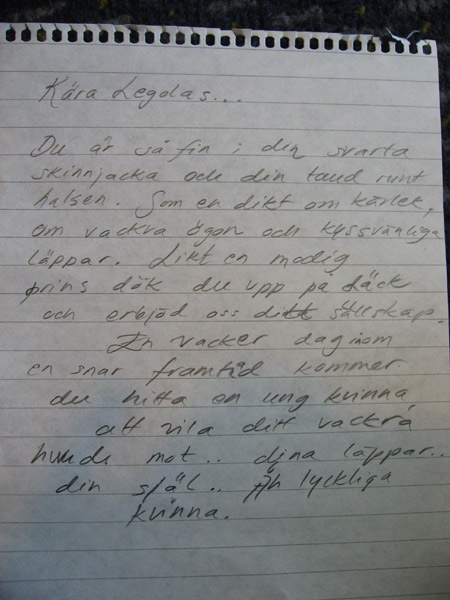 Kära Legolas...
Du är så fin i din svarta
skinnjacka och din tand runt
halsen. Som en dikt om kärlek,
om vackra ögon och kyssvänliga
läppar. Likt en modig
prins dök du upp på däck
och erbjöd oss ditt sällskap.
En vacker dag inom
en snar framtid kommer
du hitta en ung kvinna
att vila ditt vackra
huvude mot.. dina läppar..
din själ.. Åh lyckliga
kvinna.